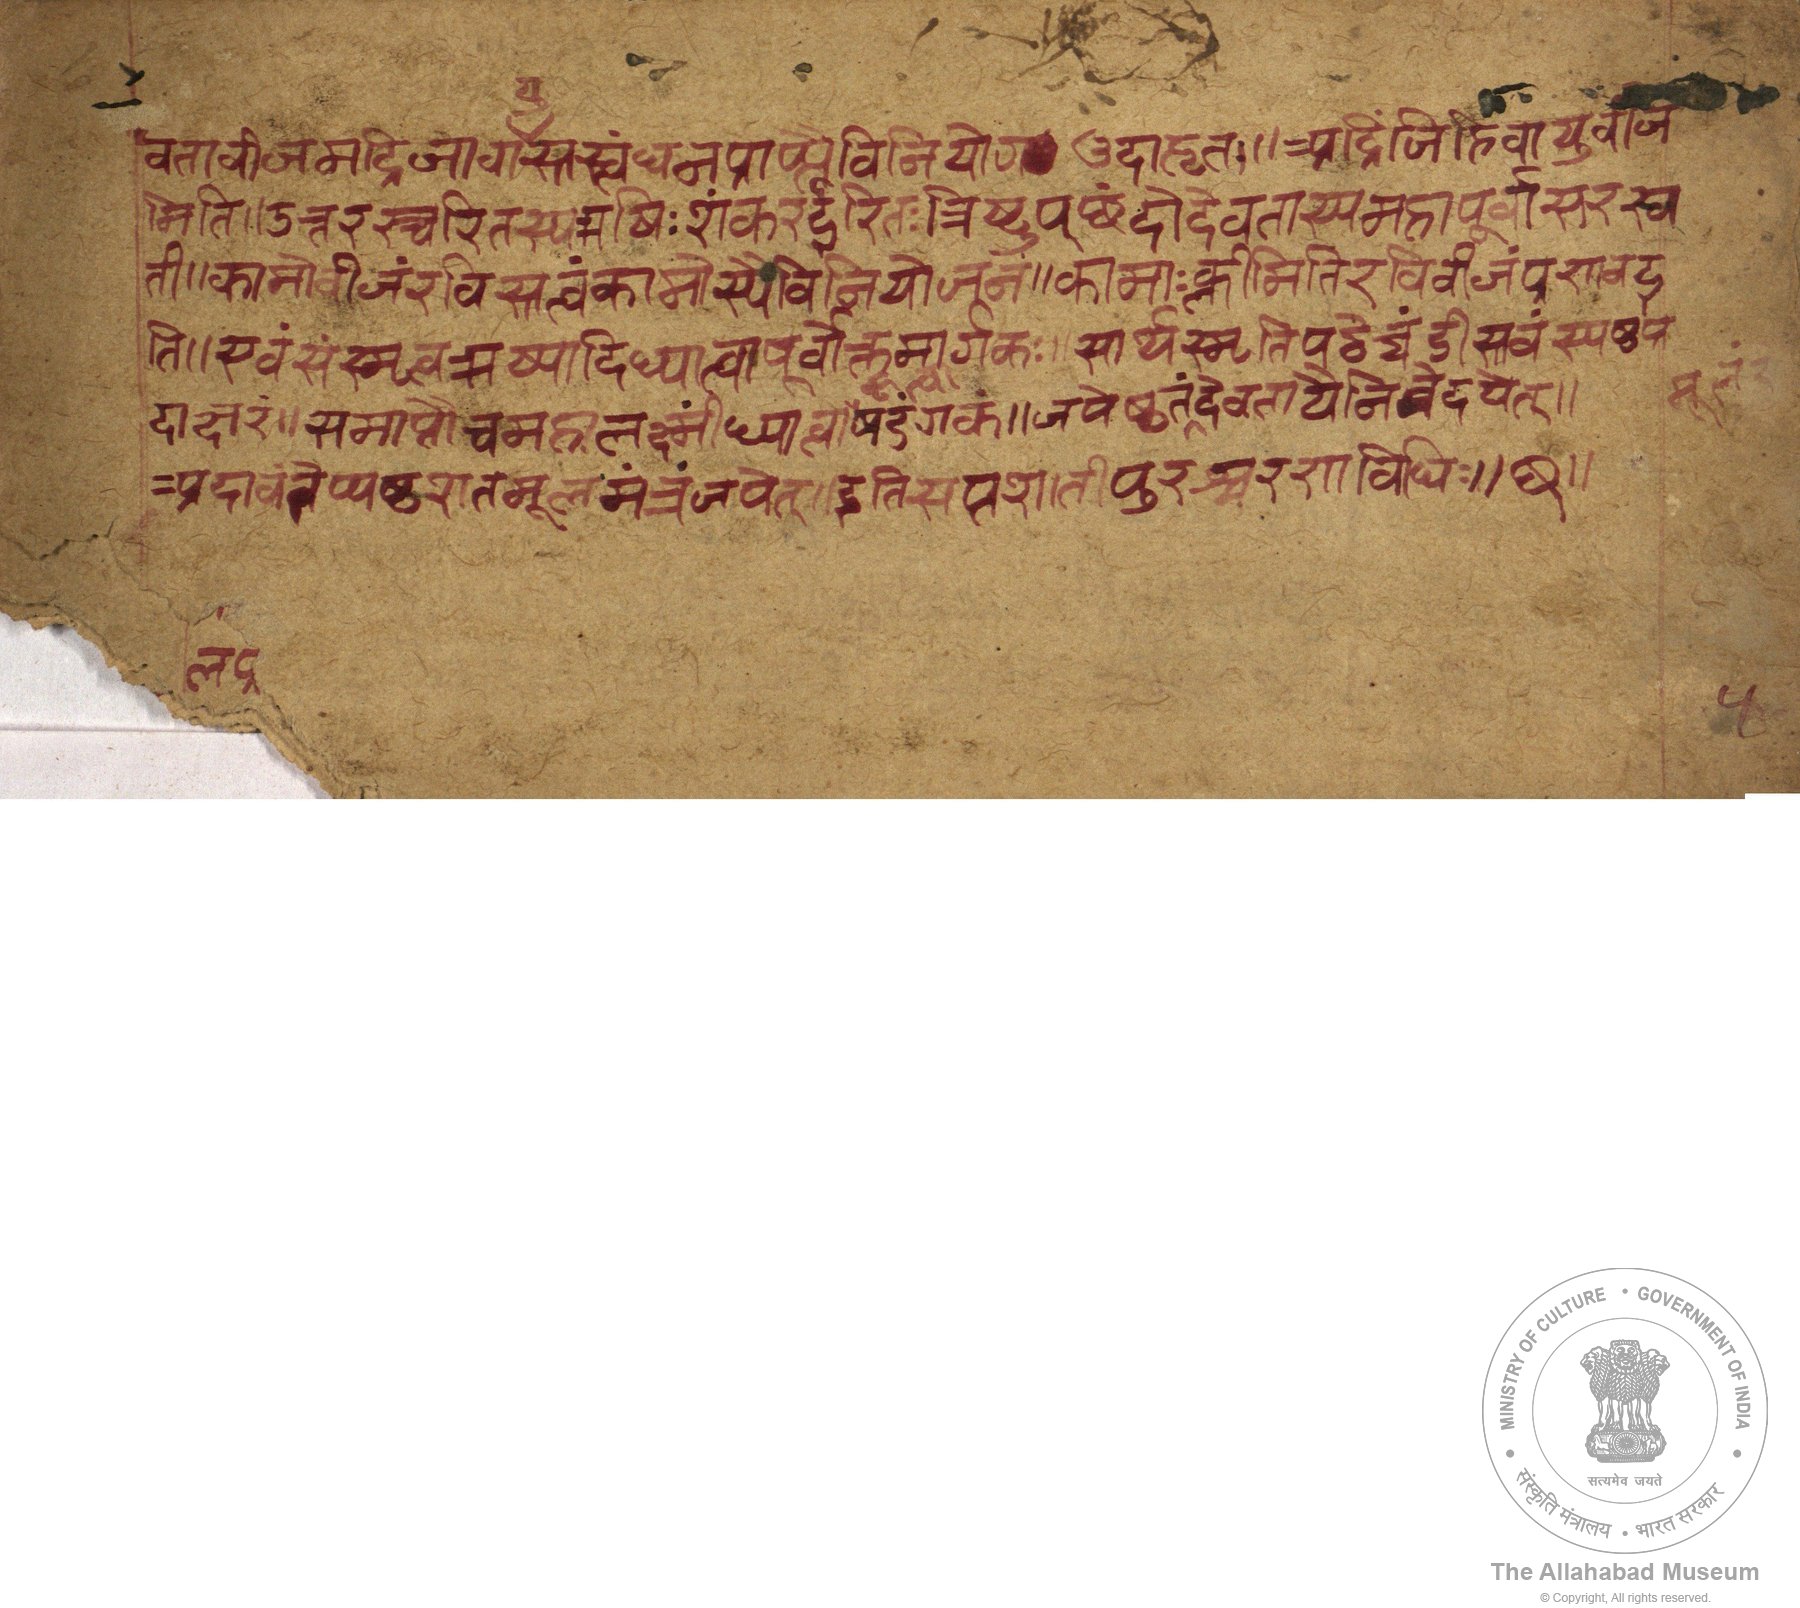 यु
वतावीजमद्रिजावासस्त्वंधनप्राप्त्यैविनियोग उदाहृतः॥ =प्रद्रिंजिहिवायुवीज
मिति॥उत्तरस्च्चरितस्यऋषिःशंकरईरितःत्रिष्टुप्छंदोदेवतास्यमहापूर्वासरस्व
ती॥कामोवीजंरविस्तत्वंकामोस्यैविनियोजनं॥कामाःक्लीमितिरविवीजंप्रणवद
ति॥एवंसंस्मृत्वऋष्यादिध्यात्वापूर्वोक्तमार्गकः॥सार्थस्मृतिपठेच्चंडीस्तवंस्पष्टप
दाक्षरं॥समाप्तौचमहालक्ष्मींध्यात्वाषडंगकं॥जपेष्टुतंदेवतायैनिवेदयेत्॥
=प्रदावंतेप्यष्टशतमूलमंत्रंजपेत्॥इतिसप्तशतीपुरश्चरणविधिः॥छ॥
लप्र
५
MINISTRY OF CULTURE • GOVERNMENT OF INDIA
सत्यमेव जयते
संस्कृति मंत्रालय • भारत सरकार
The Allahabad Museum
© Copyright, All rights reserved.